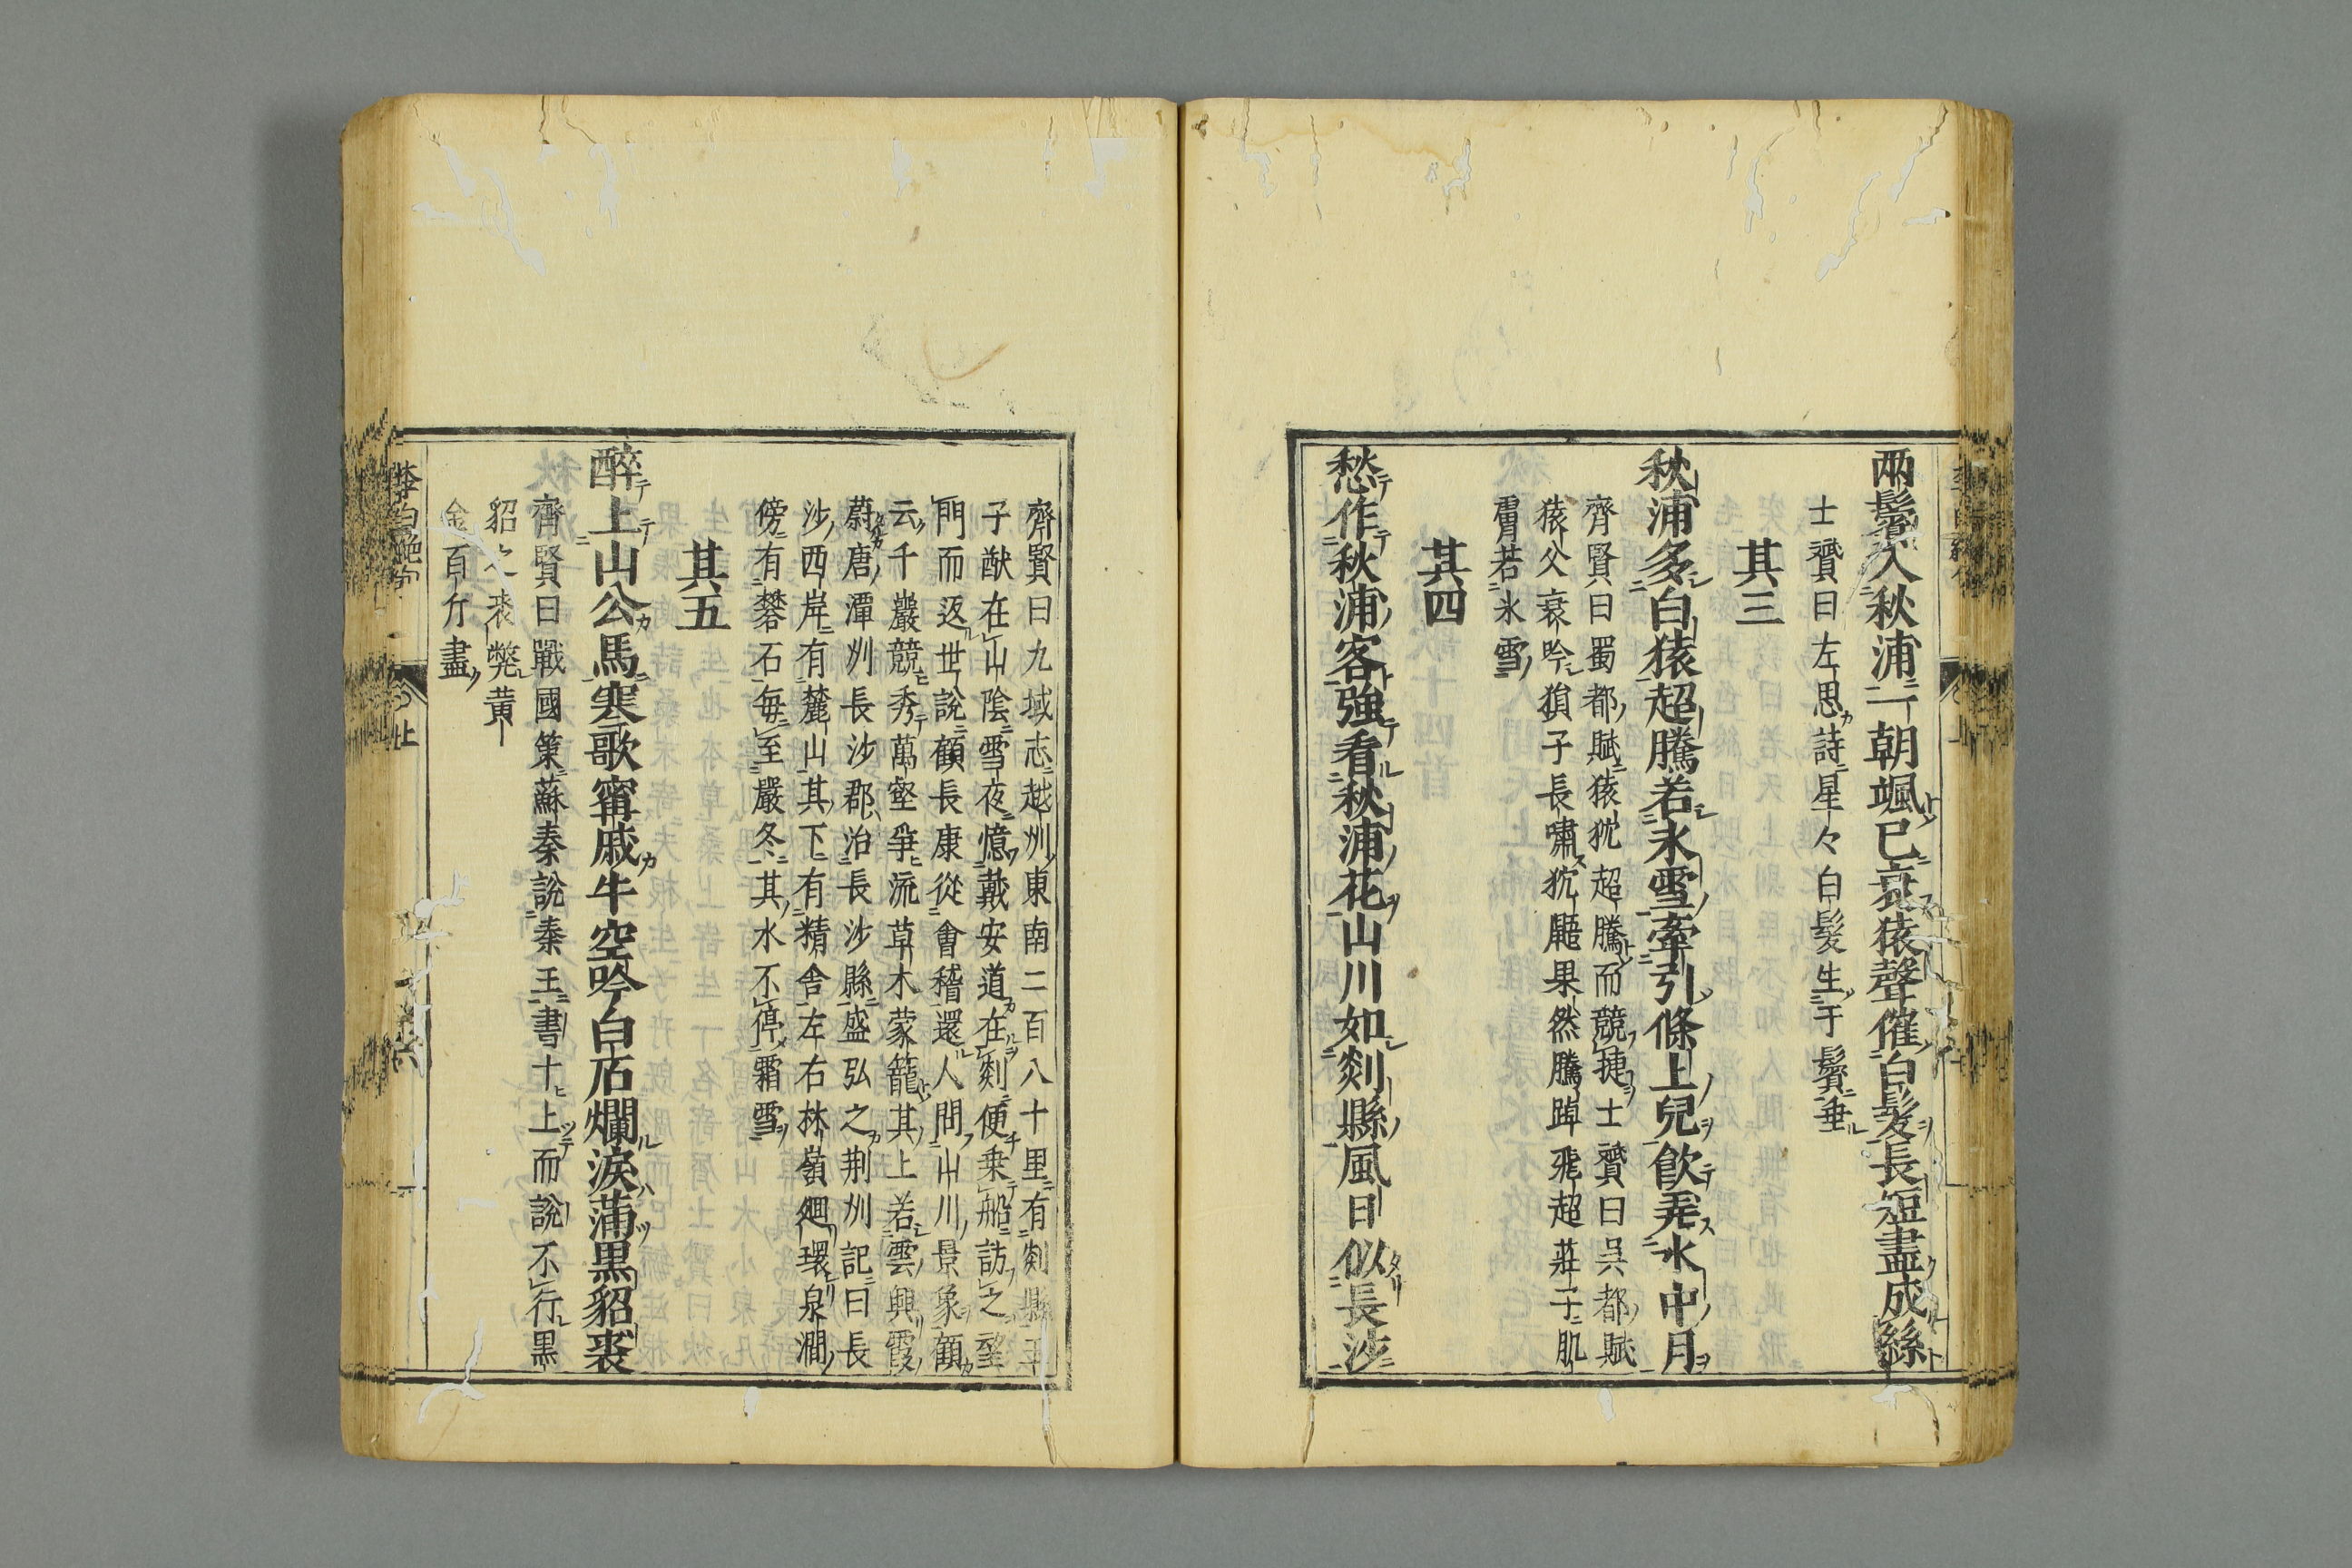 兩鬢入秋浦一朝颯已衰猿聲催白髮長短盡成絲
士贇曰左思詩星々白髮生于鬢垂
其三
秋浦多白猿超騰若氷雪牽引條上兒飮弄水中月
齊賢曰蜀都賦猿狖超騰而競捷士贇曰呉都賦
猿父哀吟㹳子長嘯狖鼯果然騰踔飛超莊子肌
膚若氷雪
其四
愁作秋浦客強看秋浦花山川如剡縣風日似長沙
齊賢曰九域志越州東南二百八十里有剡縣王
子猷在山陰雪夜憶戴安道在剡便乗船訪之望
門而返世說顧長康從會稽還人問山川景象顧
云千巖競秀萬壑爭流草木蒙籠其上若雲興霞
蔚唐潭州長沙郡治長沙縣盛弘之荆州記曰長
沙西岸有麓山其下有精舎左右林嶺廻環泉澗
傍有礬石每至嚴冬其水不停霜雪
其五
醉上山公馬寒歌甯戚牛空吟白石爛淚滿黒貂裘
齊賢曰戰國策蘇秦說秦王書十上而說不行黒
貂之裘弊黄
金百斤盡
李白絶句
上